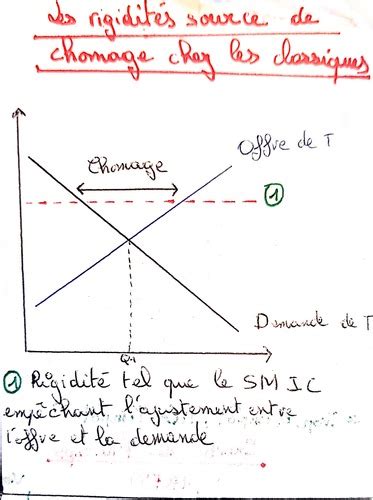 Les rigidités source de
chomage chez les classiques
Offre de T
Chomage
1
Demande de T
Q*1
1 Rigidité tel que le SMIC
empêchant l'ajustement entre
l'offre et la demande